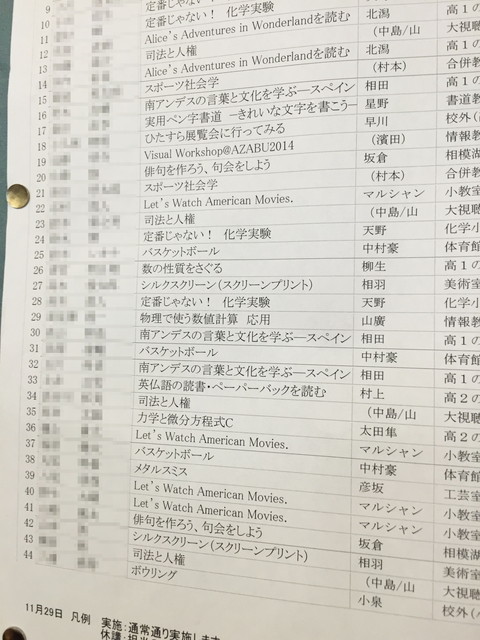 9
10 定番じゃない！
11 定番じゃない！ 化学実験
12 Alice's Adventures in Wonderlandを読む 北潟 高１の
13 司法と人権 （中島/山 大視聴
14 Alice's Adventures in Wonderlandを読む 北潟 高１の
15 スポーツ社会学 （村本） 合併教
16 南アンデスの言葉と文化を学ぶ―スペイン 相田 高１の
17 実用ペン字書道 －きれいな文字を書こう― 星野 書道教
18 ひたすら展覧会に行ってみる 早川 校外（
19 Visual Workshop@AZABU2014 （濱田） 情報教
20 俳句を作ろう、句会をしよう 坂倉 相模湖
21 スポーツ社会学 （村本） 合併教
22 Let's Watch American Movies. マルシャン 小教室
23 司法と人権 （中島/山 大視聴
24 定番じゃない！ 化学実験 天野 化学小
25 バスケットボール 中村豪 体育館
26 数の性質をさぐる 柳生 高１の
27 シルクスクリーン（スクリーンプリント） 相羽 美術室
28 定番じゃない！ 化学実験 天野 化学小
29 物理で使う数値計算 応用 山廣 情報教
30 南アンデスの言葉と文化を学ぶ―スペイン 相田 高１の
31 バスケットボール 中村豪 体育館
32 南アンデスの言葉と文化を学ぶ―スペイン 相田 高１の
33 英仏語の読書・ペーパーバックを読む 村上 高２の
34 司法と人権 （中島/山 大視聴
35 力学と微分方程式C 太田隼 高２の
36 Let's Watch American Movies. マルシャン 小教室
37 バスケットボール 中村豪 体育館
38 メタルスミス 彦坂 工芸室
39 Let's Watch American Movies. マルシャン 小教室
40 Let's Watch American Movies. マルシャン 小教室
41 俳句を作ろう、句会をしよう 坂倉 相模湖
42 シルクスクリーン（スクリーンプリント） 相羽 美術室
43 司法と人権 （中島/山 大視聴
44 ボウリング 小泉 校外（
11月29日 凡例 実施：通常通り実施します
休講：担当